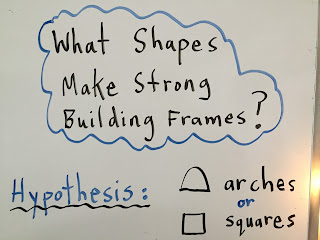 What Shapes
Make Strong
Building Frames?
Hypothesis:
arches
or
squares